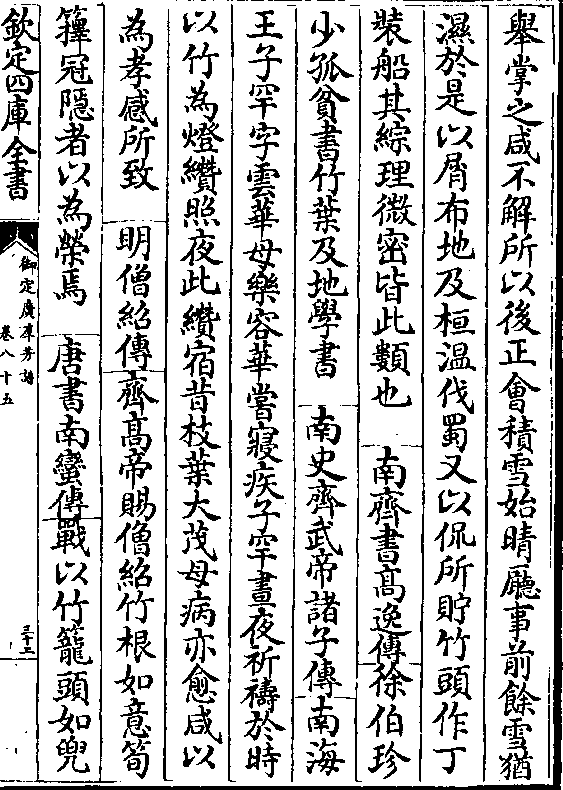 舉掌之咸不解所以後正會積雪始晴廳事前餘雪猶
濕於是以屑布地及桓温伐蜀又以侃所貯竹頭作丁
裝船其綜理微密皆此類也　南齊書髙逸傳徐伯珍
少孤貧書竹葉及地學書　南史齊武帝諸子傳南海
王子罕字雲華母樂容華嘗寢疾子罕晝夜祈禱於時
以竹為燈纘照夜此纘宿昔枝葉大茂母病亦愈咸以
為孝感所致　明僧紹傳齊髙帝賜僧紹竹根如意筍
籜冠隱者以為榮焉　唐書南蠻傳戰以竹籠頭如兜
欽定四庫全書
御定廣羣芳譜
卷八十五
三十二